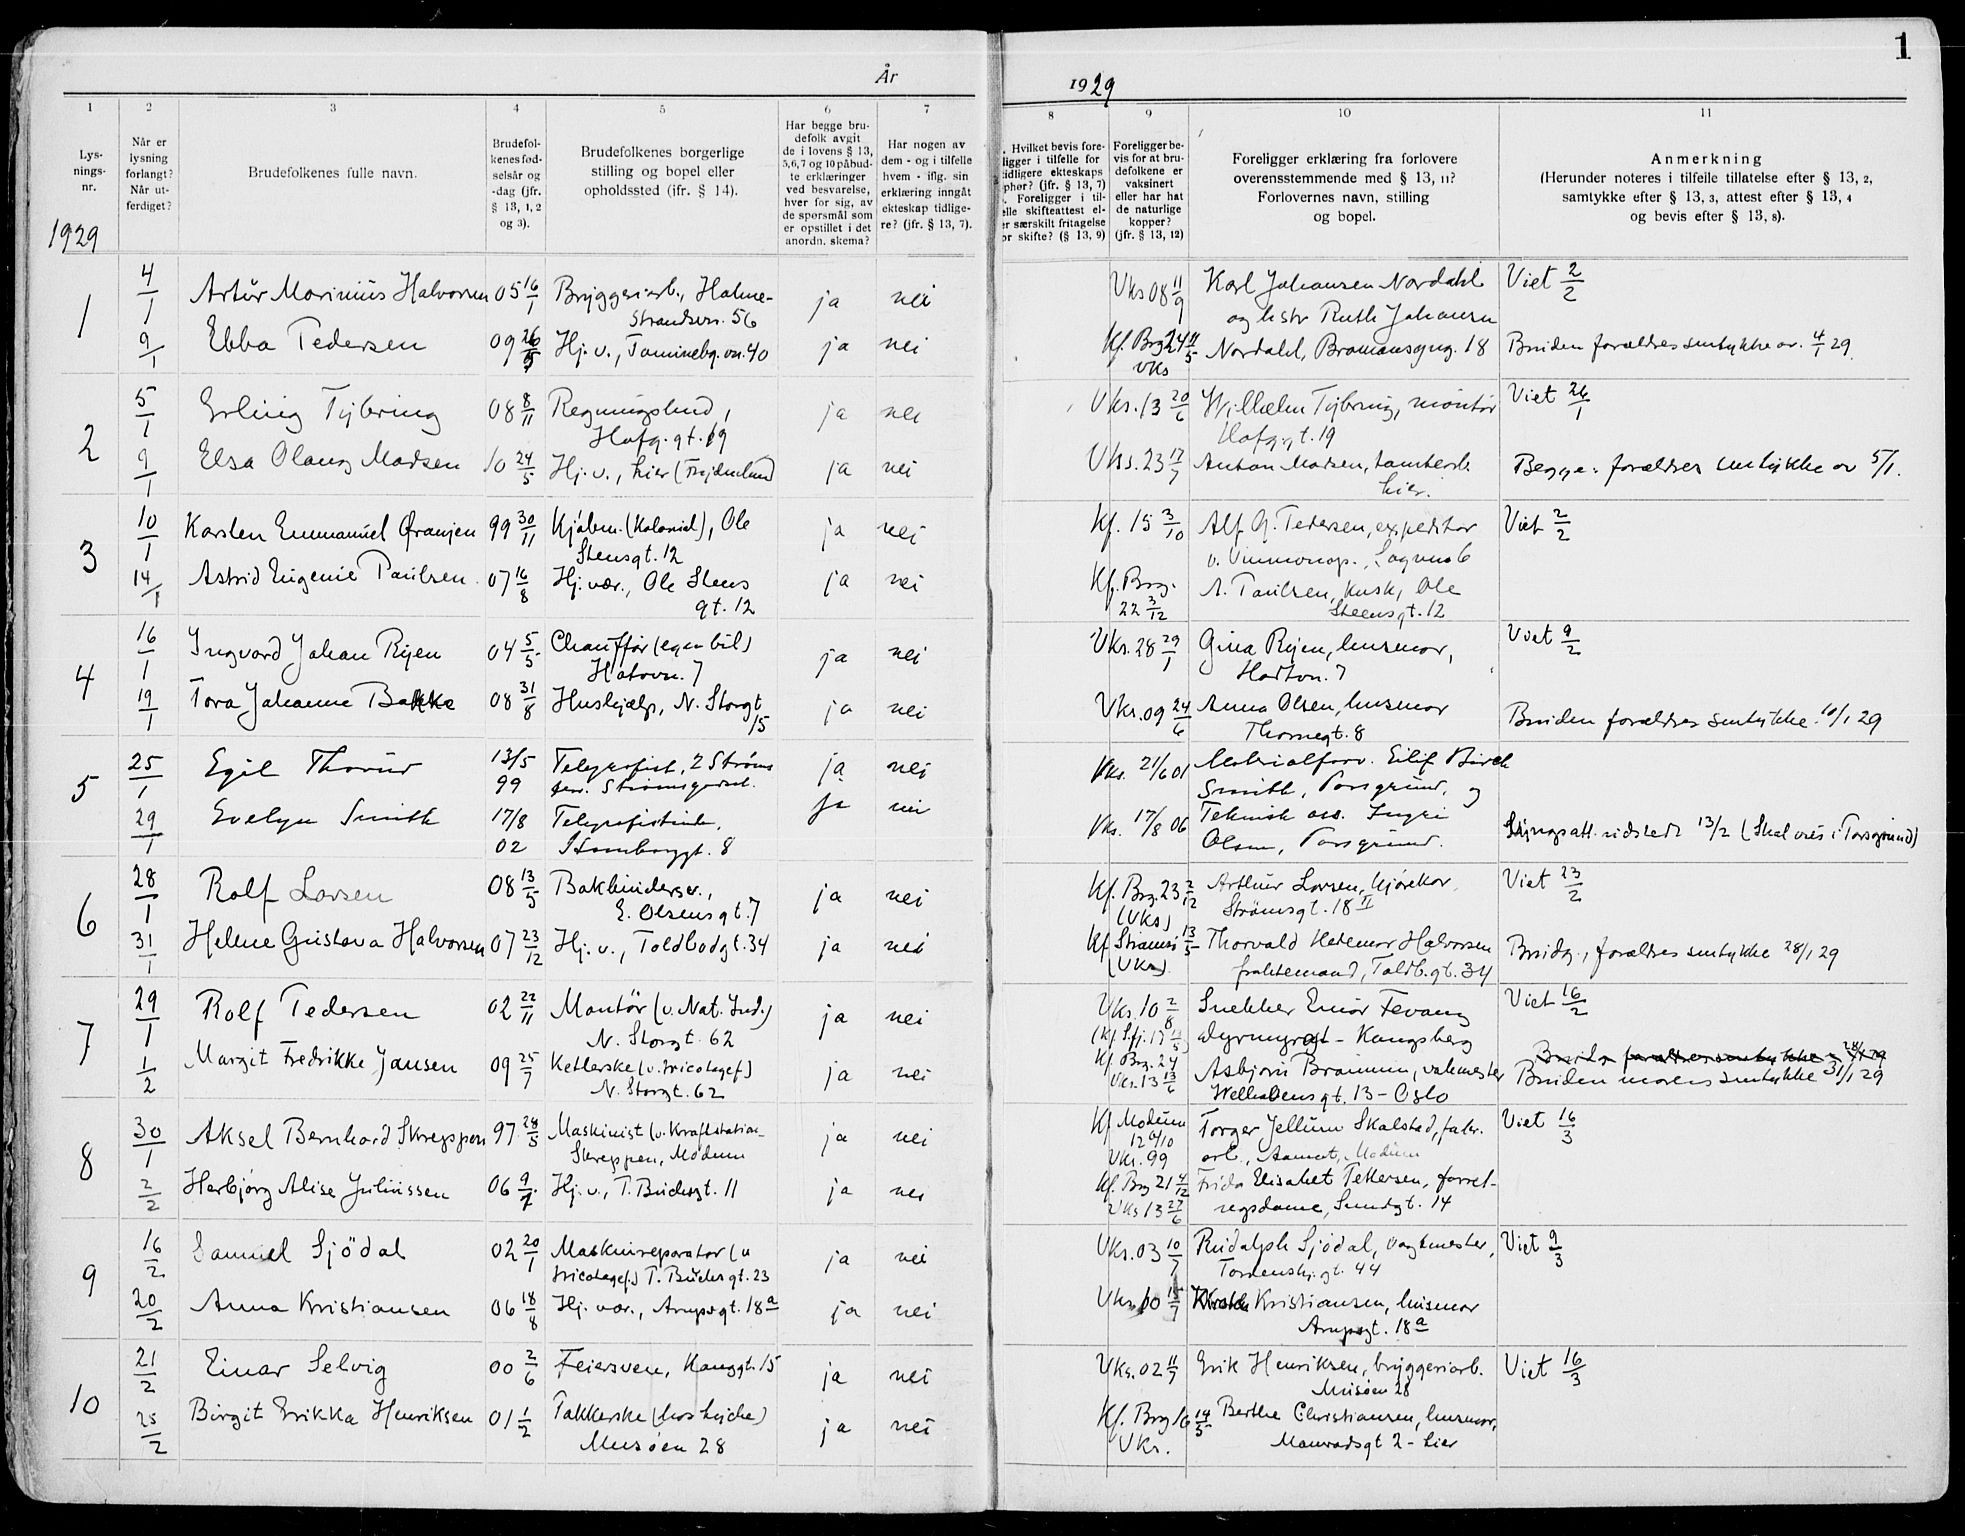 År 1929
1
1 2 3 4 5 6 7 8 9 10 11
Lys-
nings-
nr.
Når er
lysning
forlangt?
Når ut-
ferdiget?
Brudefolkenes fulle navn.
Brudefol-
kenes fød-
selsår og
-dag (jfr.
§ 13, 1, 2
og 3).
Brudefolkenes borgerlige
stilling og bopel eller
opholdssted (jfr. § 14).
Har begge bru-
defolk avgit
de i lovens § 13,
5,6,7 og 10 påbud-
te erklæringer
ved besvarelse,
hver for sig, av
de spørsmål som
er opstillet i det
anordn. skema?
Har nogen av
dem - og i tilfelle
hvem - iflg. sin
erklæring inngått
ekteskap tidlige-
re? (jfr. § 13, 7).
Hvilket bevis fore-
ligger i tilfelle for
tidligere ekteskaps
ophør? (jfr. § 13, 7)
Foreligger i til-
elle skifteattest el-
er særskilt fritagelse
or skifte? (§ 13, 9)
Foreligger be-
vis for at bru-
defolkene er
vaksinert
eller har hat
de naturlige
kopper?
(jfr. § 13, 12)
Foreligger erklæring fra forlovere
overensstemmende med § 13, 11?
Forlovernes navn, stilling
og bopel.
Anmerkning
(Herunder noteres i tilfelle tillatelse efter § 13, 2,
samtykke efter § 13, 3, attest efter § 13, 4
og bevis efter § 13, 8).
1929
1
4/1 Artur Marinius Halvorsen 05 16/1 Bryggeriarb., Holme-
strandsvn. 56 ja nei Vks 08 11/9 Karl Johansen Nordahl Viet 2/2
og hstr Ruth Johansen
9/1 Ebba Pedersen 09 26/5 Hj. v., Tominebg. vn. 40 ja nei Kf. Brg 24 Nordahl, Bromansgng. 18 Bruden forældres samtykke av 4/1 29.
Vks
2
5/1 Erling Tybring 08 8/11 Regningsbud, ja nei Vks. 13 20/6 Wilhelm Tybring, montør Viet 26/1
Hofg. gt. 19 Hofg. gt. 19
9/1 Elsa Olaug Madsen 10 24/5 Hj. v., hier (Frydenlund) ja nei Vks. 23 17/7 Anton Madsen, tomtearb. Begge: forældres samtykke av 5/1.
hier.
3
10/1 Karsten Emmanuel Øranjen 99 30/11 Kjøbm. (Kolonial), Ole ja nei Kf. 15 3/10 Alf G. Pedersen, expeditør Viet 2/2
Steensgt. 12 v. Vinmonop., Lognvn 6
14/1 Astrid Eugenie Paulsen. 07 16/8 Hj. vær., Ole Steens ja nei Kf. Brg. A. Paulsen, kusk, Ole
gt. 12 22 3/12 Steensgt. 12
4
16/1 Ingvard Johan Rijen 04 5/5 Chauffør (egen bil) ja nei Vks. 28 29/1 Gina Rijen, husmor, Viet 9/2
Hotvvn. 7
19/1 Tora Johanne Bakke 08 31/8 Hushjælp, N. Storgt ja nei Vks. 09 24/6 Anna Olsen, husmor Bruden forældres samtykke 10/1 29
15 Thornegt. 8
5
25/1 Egil Thorud 13/5 99 Telegrafist, 2 Strøms ja nei Vks. 21/6 01 Materialforv. Eilif Birch
Smith, Porsgrund, og
29/1 Evelyn Smith 17/8 02 Telegrafistinde, ja nei Vks. 17/8 06 Teknisk ass. Ingri Lysngsatt. utstedt 13/2 (Skal vies i Porsgrund)
Olsen, Porsgrund.
6
28/1 Rolf Larsen 08 13/5 Bokbindersv., ja nei Kf. Brg. 23 2/12 Arthur Larsen, kjørekar, Viet 23/2
E. Olsensgt. 7 (Vks) Strømsgt. 18 II
31/1 Helene Gustava Halvorsen 07 23/12 Hj. v., Toldbodgt. 34 ja nei Kf Strømsø 13/5 Thorvald Hedemor Halvorsen Brudg., forældres samtykke 28/1 29
(Vks) fraktemand, Toldb. gt. 34
7
29/1 Rolf Pedersen 02 22/11 Montør (v. Nat. Ind.) ja nei Vks. 10 2/8 Snekker Einar Fevang Viet 16/2
N. Storgt. 62 Dyrmyrgt - Kongsberg
1/2 Margit Fredrikke Jansen 09 25/7 Ketlerske (v. tricotagef.) ja nei Kf. Brg. 24 Vks. 13 13/6 Asbjørn Braumm, vakmester Bruden morens samtykke 31/1 29
N. Storgt. 62 Welhavensgt. 13 - Oslo
8
30/1 Aksel Bernhard Skreppen 97 28/5 Maskinist (v. Kraftstation- ja nei Kf Modum 12 Torger Jellum Skalstad, fabr. Viet 16/3
Skreppen, Modum Vks. 99 arb., Aamot, Modum
2/2 Herbjørg Alise Juliussen 06 9/7 Hj. v., T. Buchsgt. 11 ja nei Kf. Brg 21 4/12 Frida Elisabet Pettersen, forret-
Vks 13 27/6 ngsdame, Sundgt. 14
9
16/2 Samuel Sjödal 02 20/1 Maskinreparatør (v ja nei Vks. 03 10/7 Rudolph Sjödal, vagtmester, Viet 9/3
tricotagef.) T. Buchsgt. 23 Tordenskj. gt. 44
20/2 Anna Kristiansen 06 18/8 Hj. vær., Arupsgt. 18a ja nei Vks. 10 15/7 Kristiansen, husmor
Arupsgt. 18a
10
21/2 Einar Selvig 00 2/6 Feiersven, Konggt. 15 ja nei Vks. 02 11/7 Erik Henriksen, bryggeriarb. Viet 16/3
Musøen 28
25/2 Birgit Erikka Henriksen 01 1/2 Pakkerske (hos Lyche) ja nei Kf. Brg 16 14/5 Berthe Christiansen, husmor,
Musøen 28 Vks. Mauradsgt 2 - hier